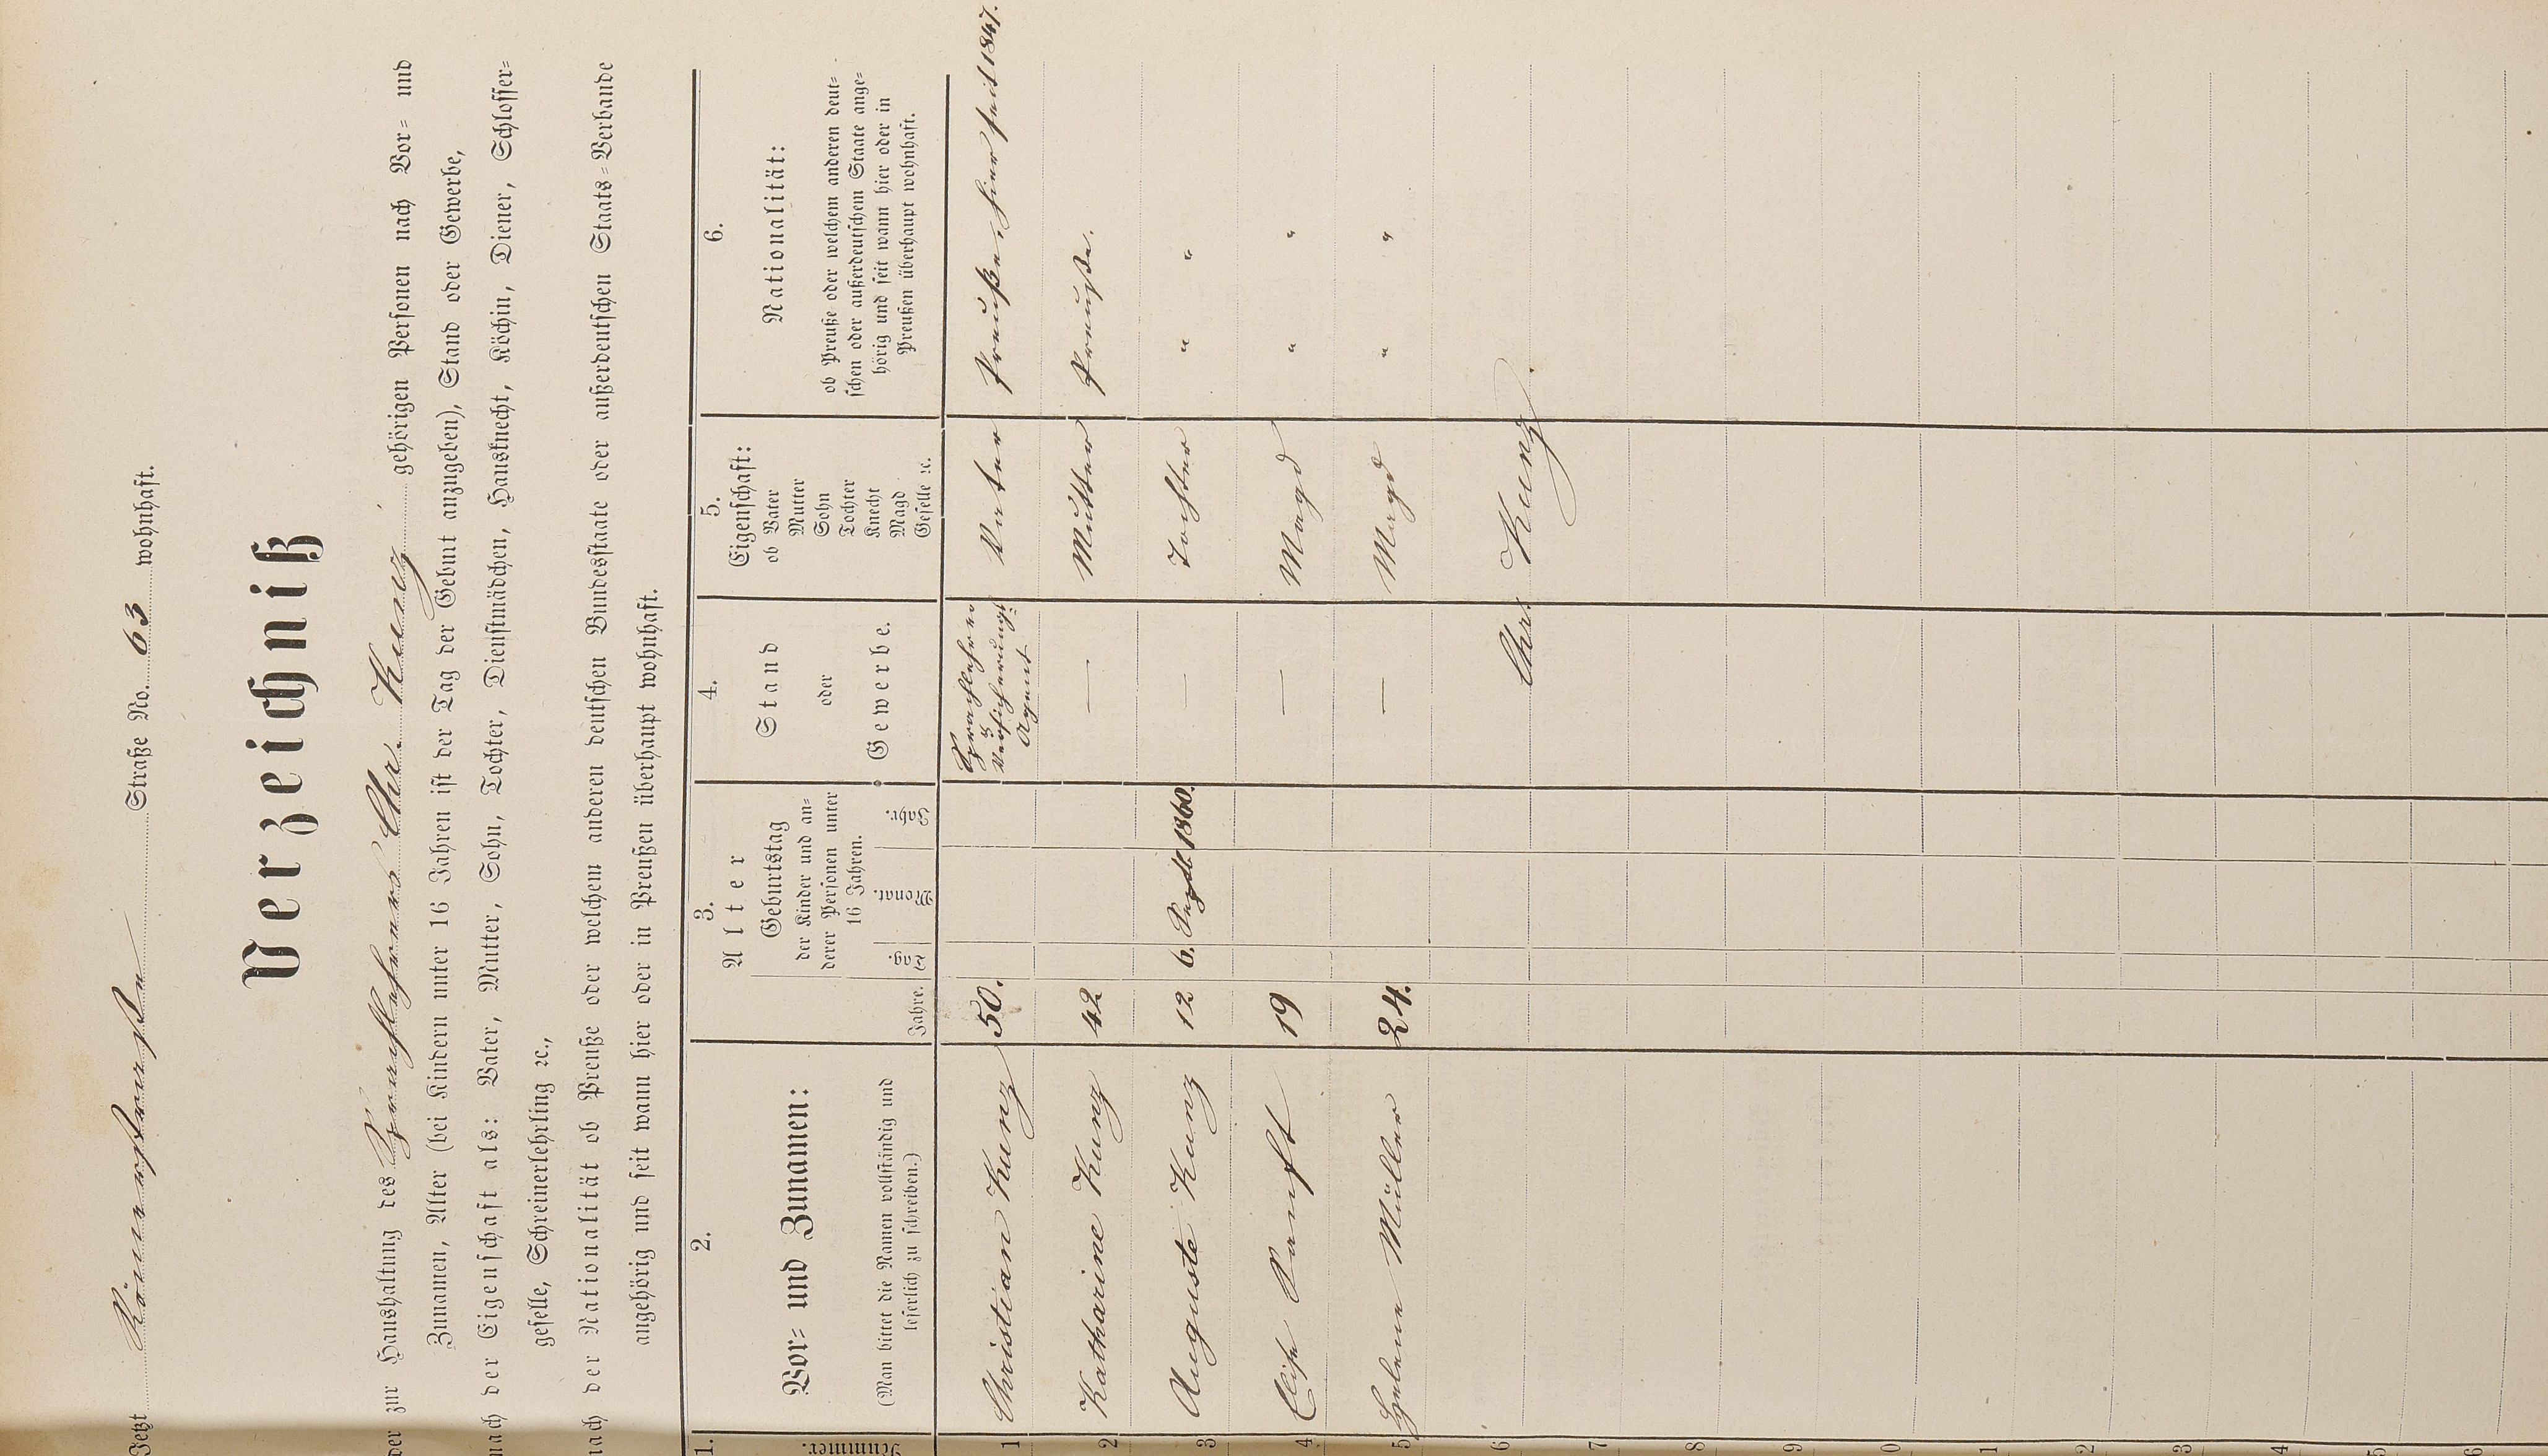 Jetzt Römerstraße Straße No. 63 wohnhaft.
Verzeichniß
der zur Haushaltung des Sprachlehrers Chr. Kunz gehörigen Personen nach Vor= und
Zunamen, Alter (bei Kindern unter 16 Jahren ist der Tag der Geburt anzugeben), Stand oder Gewerbe,
nach der Eigenschaft als: Vater, Mutter, Sohn, Tochter, Dienstmädchen, Hausknecht, Köchin, Diener, Schlosser=
geselle, Schreinerlehrling ꝛc.,
nach der Nationalität ob Preuße oder welchem anderen deutschen Bundesstaate oder außerdeutschen Staats=Verbande
angehörig und seit wann hier oder in Preußen überhaupt wohnhaft.
1.
Nummer.
2.
Vor= und Zunamen:
(Man bittet die Namen vollständig und
leserlich zu schreiben.)
3.
Alter
Jahre.
Geburtstag
der Kinder und an=
derer Personen unter
16 Jahren.
Tag. Monat. Jahr.
4.
Stand
oder
Gewerbe.
5.
Eigenschaft:
ob Vater
Mutter
Sohn
Tochter
Knecht
Magd
Geselle ꝛc.
6.
Nationalität:
ob Preuße oder welchem anderen deut=
schen oder außerdeutschem Staate ange=
hörig und seit wann hier oder in
Preußen überhaupt wohnhaft.
1 Christian Kunz 50. Sprachlehrer & Versicherungs= Agent Vater Preuße, hier seit 1847.
2 Katharine Kunz 42 — Mutter Preuße.
3 Auguste Kunz 12 6. 1860. — Tochter " "
4 Elise 19 — Magd " "
5 Helene Müller 24. — Magd " "
6 Chr. Kunz.
7
8
9
0
1
2
3
4
5
6